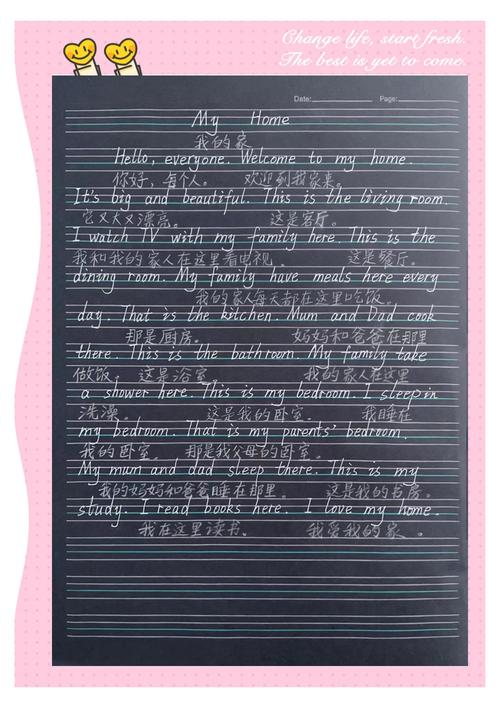 Change life, start fresh.
The best is yet to come.
Date: Page:
My Home
我的家
Hello, everyone. Welcome to my home.
你好，每个人。 欢迎到我家来。
It's big and beautiful. This is the living room.
它又大又漂亮。 这是客厅。
I watch TV with my family here. This is the
我和我的家人在这里看电视。 这是餐厅。
dining room. My family have meals here every
我的家人每天都在这里吃饭。
day. That is the kitchen. Mum and Dad cook
那是厨房。 妈妈和爸爸在那里
there. This is the bathroom. My family take
做饭。 这是浴室 我的家人在这里
a shower here. This is my bedroom. I sleep in
洗澡。 这是我的卧室. 我睡在
my bedroom. That is my parents' bedroom.
我的卧室。 那是我父母的卧室。
My mum and dad sleep there. This is my
我的妈妈和爸爸睡在那里。 这是我的书房。
study. I read books here. I love my home.
我在这里读书。 我爱我的家。